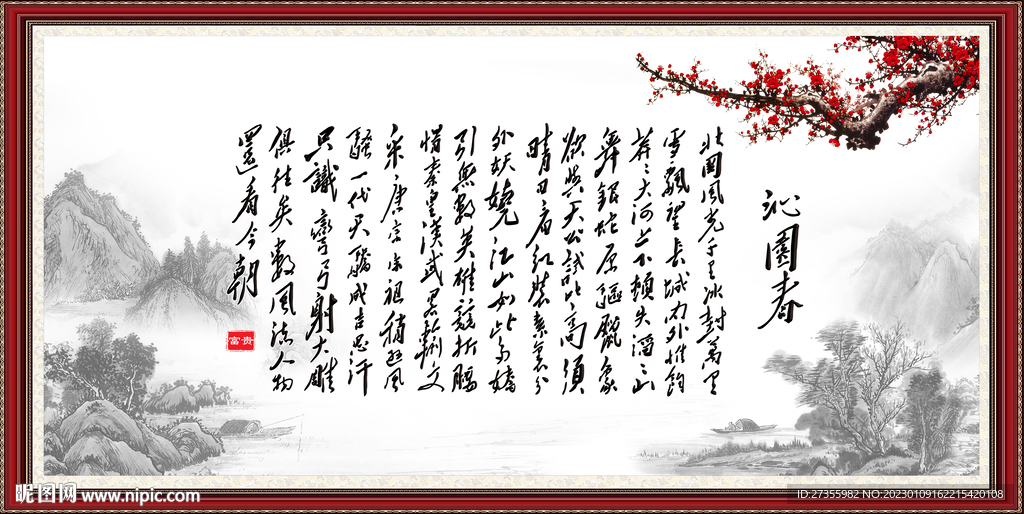 沁園春
北國風光千里冰封萬里
雪飄望長城內外惟餘
莽〻大河上下頓失滔〻山
舞銀蛇原驅臘象
欲與天公試比高須
晴日看紅裝素裹分
外妖嬈江山如此多嬌
引無數英雄競折腰
惜秦皇漢武略輸文
采唐宗宋祖稍遜風
騷一代天驕成吉思汗
只識彎弓射大雕
俱往矣數風流人物
還看今朝
富·贵
昵图网 www.nipic.com
ID:27355982 NO:20230109162215420108